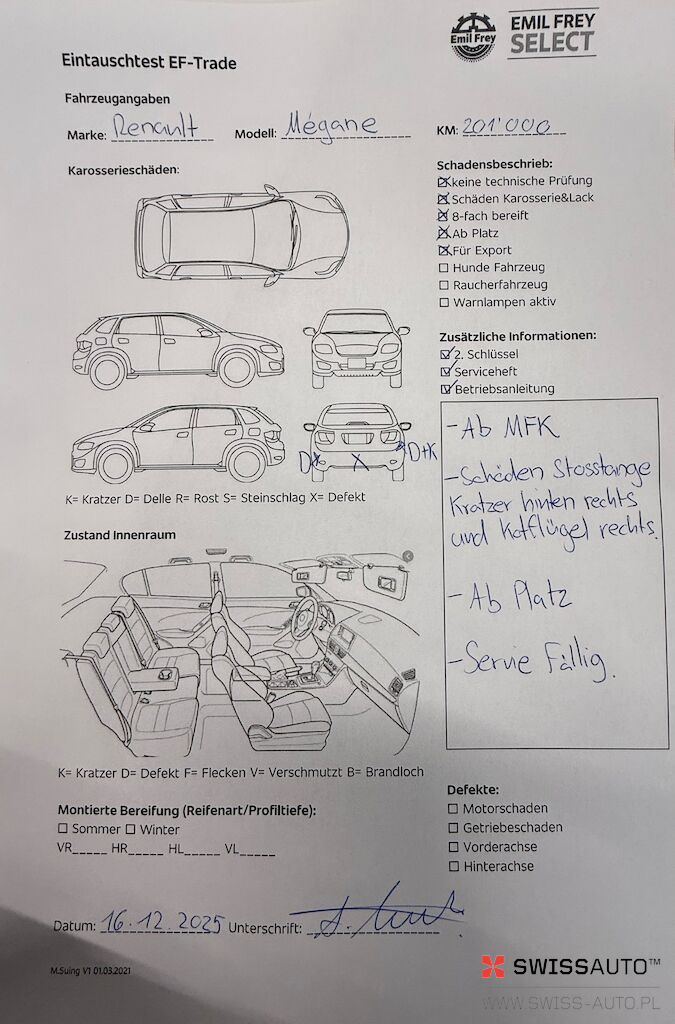 Emil Frey
EMIL FREY
SELECT
Eintauschtest EF-Trade
Fahrzeugangaben
Marke: Renault Modell: Mégane KM: 201'000
Karosserieschäden:
Schadensbeschrieb:
keine technische Prüfung
Schäden Karosserie&Lack
8-fach bereift
Ab Platz
Für Export
Hunde Fahrzeug
Raucherfahrzeug
Warnlampen aktiv
Zusätzliche Informationen:
2. Schlüssel
Serviceheft
Betriebsanleitung
D X X D+K
K= Kratzer D= Delle R= Rost S= Steinschlag X= Defekt
- Ab MFK
- Schäden Stosstange
Kratzer hinten rechts
und Kotflügel rechts.
- Ab Platz
- Servie Fällig.
Zustand Innenraum
K= Kratzer D= Defekt F= Flecken V= Verschmutzt B= Brandloch
Montierte Bereifung (Reifenart/Profiltiefe):
Sommer Winter
VR_____ HR_____ HL_____ VL_____
Defekte:
Motorschaden
Getriebeschaden
Vorderachse
Hinterachse
Datum: 16.12.2025 Unterschrift:
M.Suing V1 01.03.2021
SWISSAUTO™
WWW.SWISS-AUTO.PL